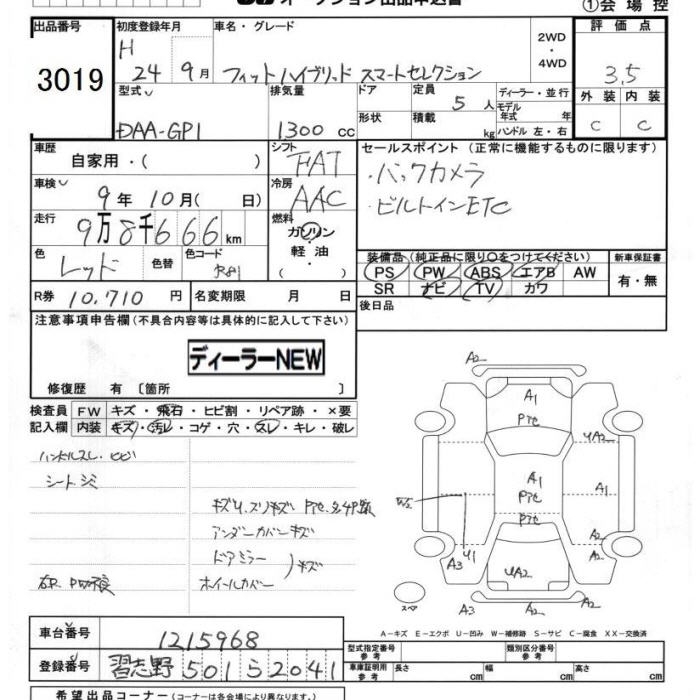 オークション出品申込書
①会場控
出品番号 初度登録年月 車名・グレード 評価点
3019 H 24 9月 フィットハイブリッド スマートセレクション 2WD ・ 4WD 3.5
型式 排気量 ドア 定員 5人 ディーラー・並行 外装 内装
DAA-GP1 1300 cc 形状 積載 kg モデル年式 年 ハンドル 左・右 C C
車歴 シフト セールスポイント (正常に機能するものに限ります)
自家用・( ) FAT ・バックカメラ
車検 9年10月( 日) 冷房 AAC ・ビルトインETC
走行 9万8千666km 燃料 ガソリン ・ 軽油 ・
色 レッド 色替 色コード R81
装備品 (純正品に限り○をつけてください) 新車保証書
PS PW ABS エアB AW 有・無
SR ナビ TV カワ
R券 10,710円 名変期限 月 日 後日品
注意事項申告欄(不具合内容等は具体的に記入して下さい)
ディーラーNEW
修復歴 有 〔箇所 〕
検査員 FW キズ・飛石・ヒビ割・リペア跡・×要
記入欄 内装 キズ・汚レ・コゲ・穴・スレ・キレ・破レ
ハンドルスレ・ヒビ
シートシミ
アンダーカバーキズ
ドアミラー
ホイールカバー
キズ
A2
A1
Pтc
UA2
A1
A1
Pтc
Pтc
W2
U1
A2
A3
UA2
A2
A3
A2
スペア
A-キズ E-エクボ U-凹み W-補修跡 S-サビ C-腐食 XX-交換済
車台番号 1215968
型式指定番号 参考 類別区分番号 参考
登録番号 習志野 501 ら 2041
車庫証明用 参考 長さ cm 幅 cm 高さ cm
希望出品コーナー(コーナーは各会場により異なります。)